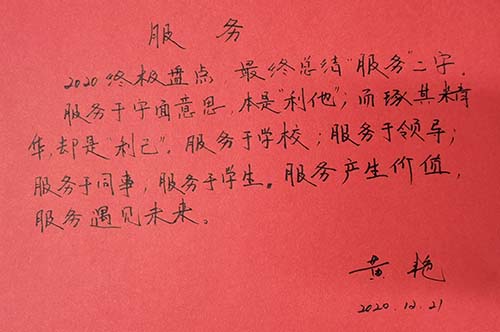 服务
2020终极盘点，最终总结“服务”二字.
服务于字面意思，本是“利他”；而琢其精
华，却是“利己”。服务于学校；服务于领导；
服务于同事，服务于学生。服务产生价值，
服务遇见未来。
黄艳
2020.12.21